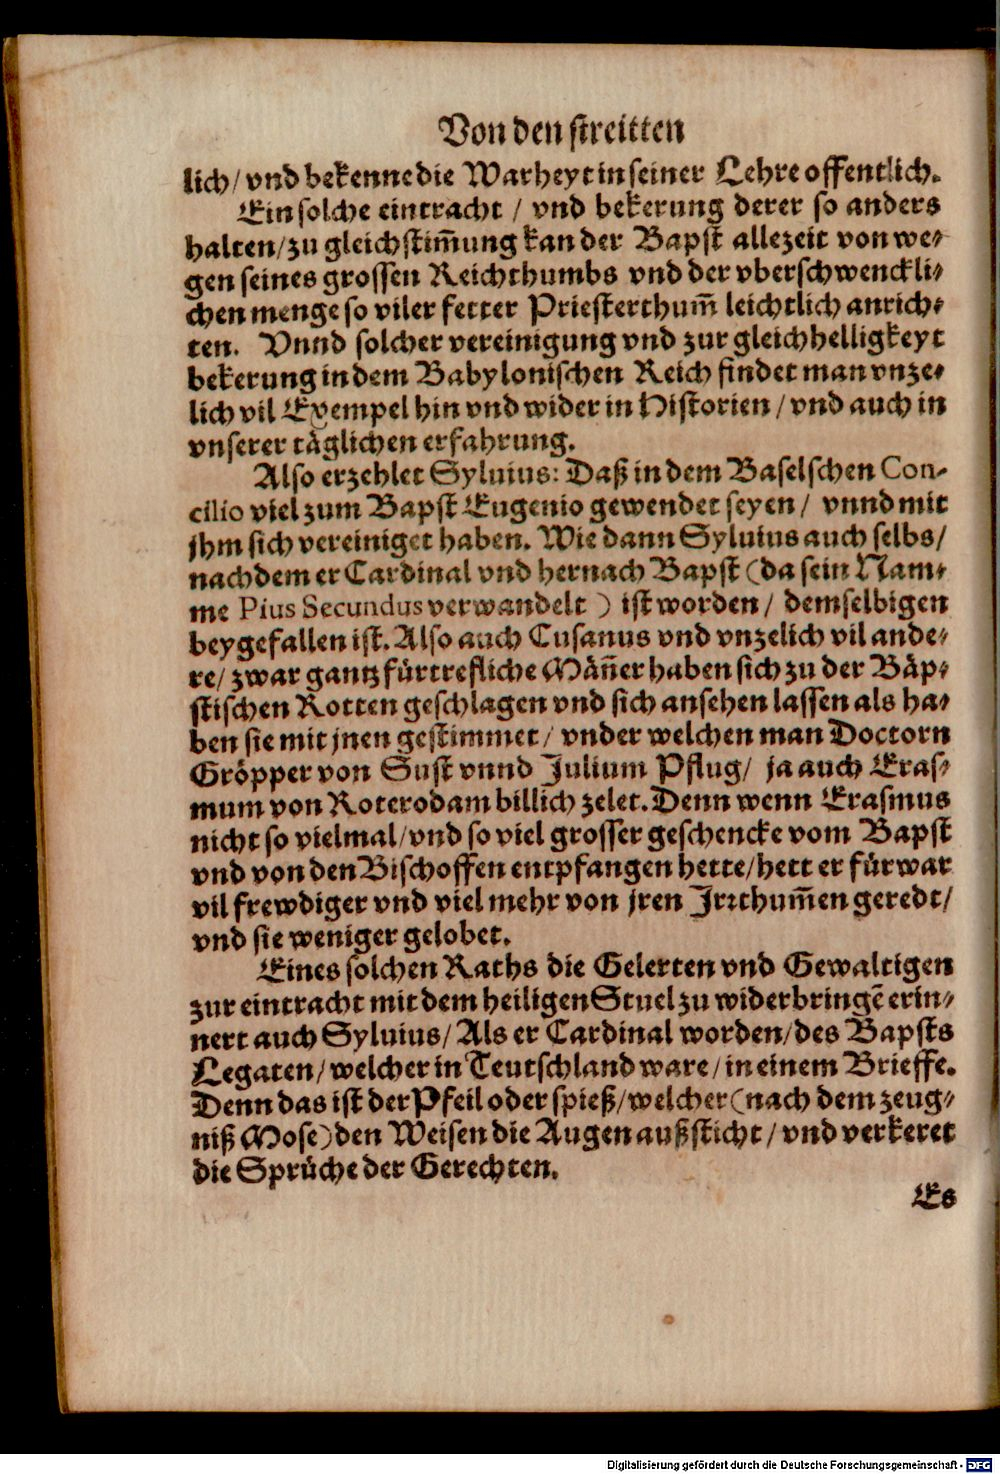 Von den streitten
lich/ vnd bekenne die Warheyt in seiner Lehre offentlich.
Ein solche eintracht / vnd bekerung derer so anders
halten/ zu gleichstim̃ung kan der Bapst allezeit von we-
gen seines grossen Reichthumbs vnd der vberschwenckli-
chen menge so viler fetter Priesterthum̃ leichtlich anrich-
ten. Vnnd solcher vereinigung vnd zur gleichhelligkeyt
bekerung in dem Babylonischen Reich findet man vnze-
lich vil Exempel hin vnd wider in Historien / vnd auch in
vnserer täglichen erfahrung.
Also erzehlet Syluius: Daß in dem Baselschen Con-
cilio viel zum Bapst Eugenio gewendet seyen / vnnd mit
jhm sich vereiniget haben. Wie dann Syluius auch selbs/
nachdem er Cardinal vnd hernach Bapst (da sein Nam-
me Pius Secundus verwandelt ) ist worden / demselbigen
beygefallen ist. Also auch Cusanus vnd vnzelich vil ande-
re/ zwar gantz fürtrefliche Mäñer haben sich zu der Bäp-
stischen Rotten geschlagen vnd sich ansehen lassen als ha-
ben sie mit jnen gestimmet/ vnder welchen man Doctorn
Gröpper von Sust vnnd Julium Pflug/ ja auch Eras-
mum von Roterodam billich zelet. Denn wenn Erasmus
nicht so vielmal/ vnd so viel grosser geschencke vom Bapst
vnd von den Bischoffen entpfangen hette/ hett er fürwar
vil frewdiger vnd viel mehr von jren Jrꝛthum̃en geredt/
vnd sie weniger gelobet.
Eines solchen Raths die Gelerten vnd Gewaltigen
zur eintracht mit dem heiligen Stuel zu widerbringẽ erin-
nert auch Syluius/ Als er Cardinal worden/ des Bapsts
Legaten/ welcher in Teutschland ware/ in einem Brieffe.
Denn das ist der Pfeil oder spieß/ welcher (nach dem zeug-
niß Mose) den Weisen die Augen außsticht/ vnd verkeret
die Sprüche der Gerechten.
Es
Digitalisierung gefördert durch die Deutsche Forschungsgemeinschaft - DFG